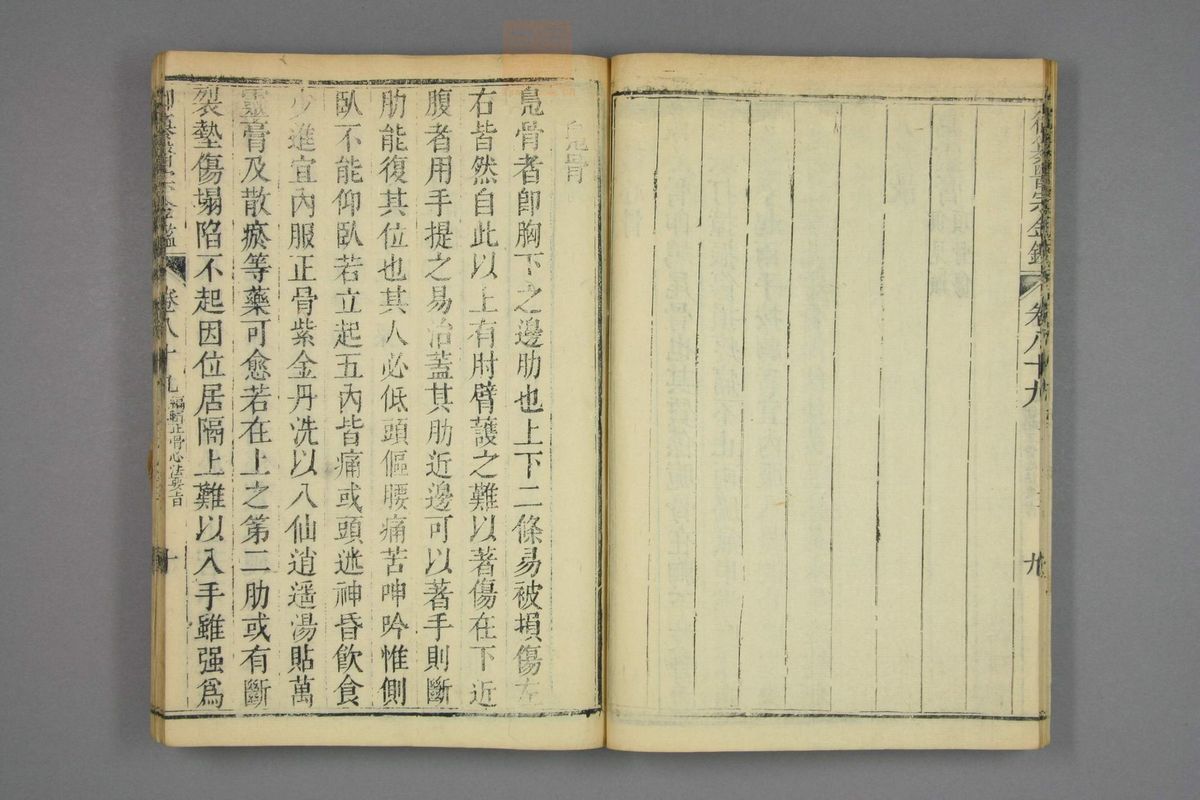 御纂醫宗金鑑 卷八十九 九
鳬骨
鳬骨者卽胸下之邊肋也上下二條易被損傷左
右皆然自此以上有肘臂護之難以著傷在下近
腹者用手提之易治蓋其肋近邊可以著手則斷
肋能復其位也其人必低頭傴腰痛苦呻吟惟側
臥不能仰臥若立起五內皆痛或頭迷神昏飲食
少進宜內服正骨紫金丹洗以八仙逍遥湯貼萬
靈膏及散瘀等藥可愈若在上之第二肋或有斷
裂墊傷塌陷不起因位居隔上難以入手雖强爲
御纂醫宗金鑑 卷八十九 編輯正骨心法要旨 十